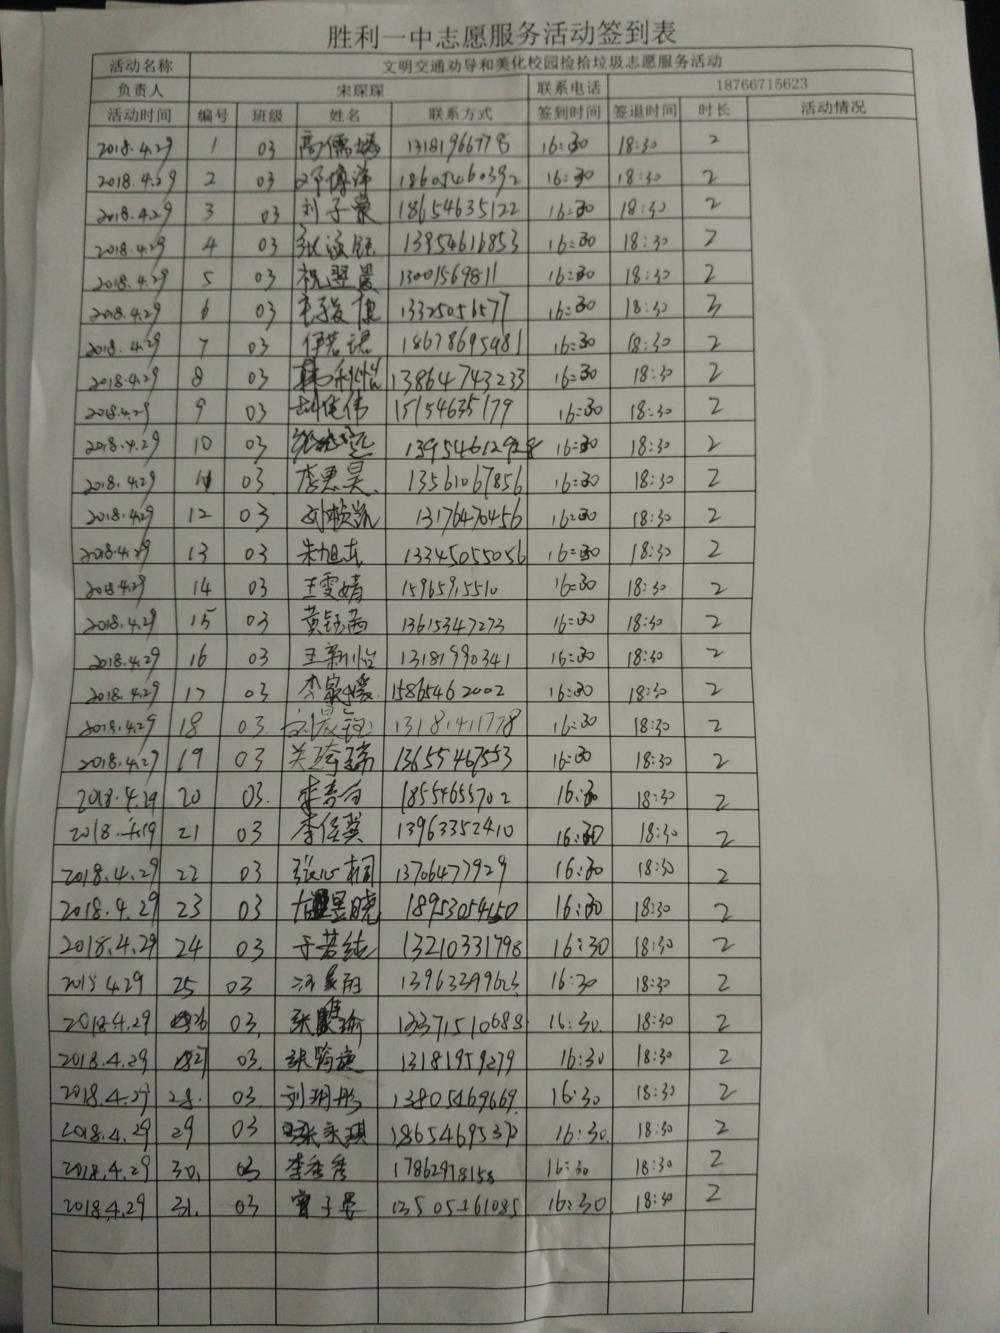 胜利一中志愿服务活动签到表
活动名称 文明交通劝导和美化校园捡拾垃圾志愿服务活动
负责人 宋琛琛 联系电话 18766715623
活动时间 编号 班级 姓名 联系方式 签到时间 签退时间 时长 活动情况
2018.4.29 1 03 高儒 13181966778 16:30 18:30 2
2018.4.29 2 03 邓博洋 18605460392 16:30 18:30 2
2018.4.29 3 03 刘子荣 18654635122 16:30 18:30 2
2018.4.29 4 03 张 13954616853 16:30 18:30 2
2018.4.29 5 03 祝翌晨 13001569811 16:30 18:30 2
2018.4.29 6 03 毛骏 13325056577 16:30 18:30
2018.4.29 7 03 伊若 18678695481 16:30 18:30 2
2018.4.29 8 03 韩利怡 13864743233 16:30 18:30 2
2018.4.29 9 03 伟 15154635179 16:30 18:30 2
2018.4.29 10 03 16:30 18:30 2
2018.4.29 11 03 李惠昊 13561067856 16:30 18:30 2
2018.4.29 12 03 刘 凯 13176470456 16:30 18:30 2
2018.4.29 13 03 朱旭东 13345055056 16:30 18:30 2
2018.4.29 14 03 王雯婧 15965915510 16:30 18:30 2
2018.4.29 15 03 黄钰茜 13615347273 16:30 18:30 2
2018.4.29 16 03 王新怡 13181990341 16:30 18:30 2
2018.4.29 17 03 李家媛 15865462002 16:30 18:30 2
2018.4.29 18 03 刘晨 13181411778 16:30 18:30 2
2018.4.29 19 03 关 瑞 13655467553 16:30 18:30 2
2018.4.29 20 03 李 18554655702 16:30 18:30 2
2018.4.29 21 03 李 冀 13963352410 16:30 18:30 2
2018.4.29 22 03 张心桐 13706477929 16:30 18:30 2
2018.4.29 23 03 昱晓 18953054150 16:30 18:30 2
2018.4.29 24 03 于若纯 13210331798 16:30 18:30 2
2018.4.29 25 03 13963399623 16:30 18:30 2
2018.4.29 26 03 张 13371510688 16:30 18:30 2
2018.4.29 27 03 张 13181959279 16:30 18:30 2
2018.4.29 28 03 刘玥彤 13805469669 16:30 18:30 2
2018.4.29 29 03 张 琪 16:30 18:30 2
2018.4.29 30 03 李 17862978158 16:30 18:30 2
2018.4.29 31 03 曹子墨 13505461085 16:30 18:30 2